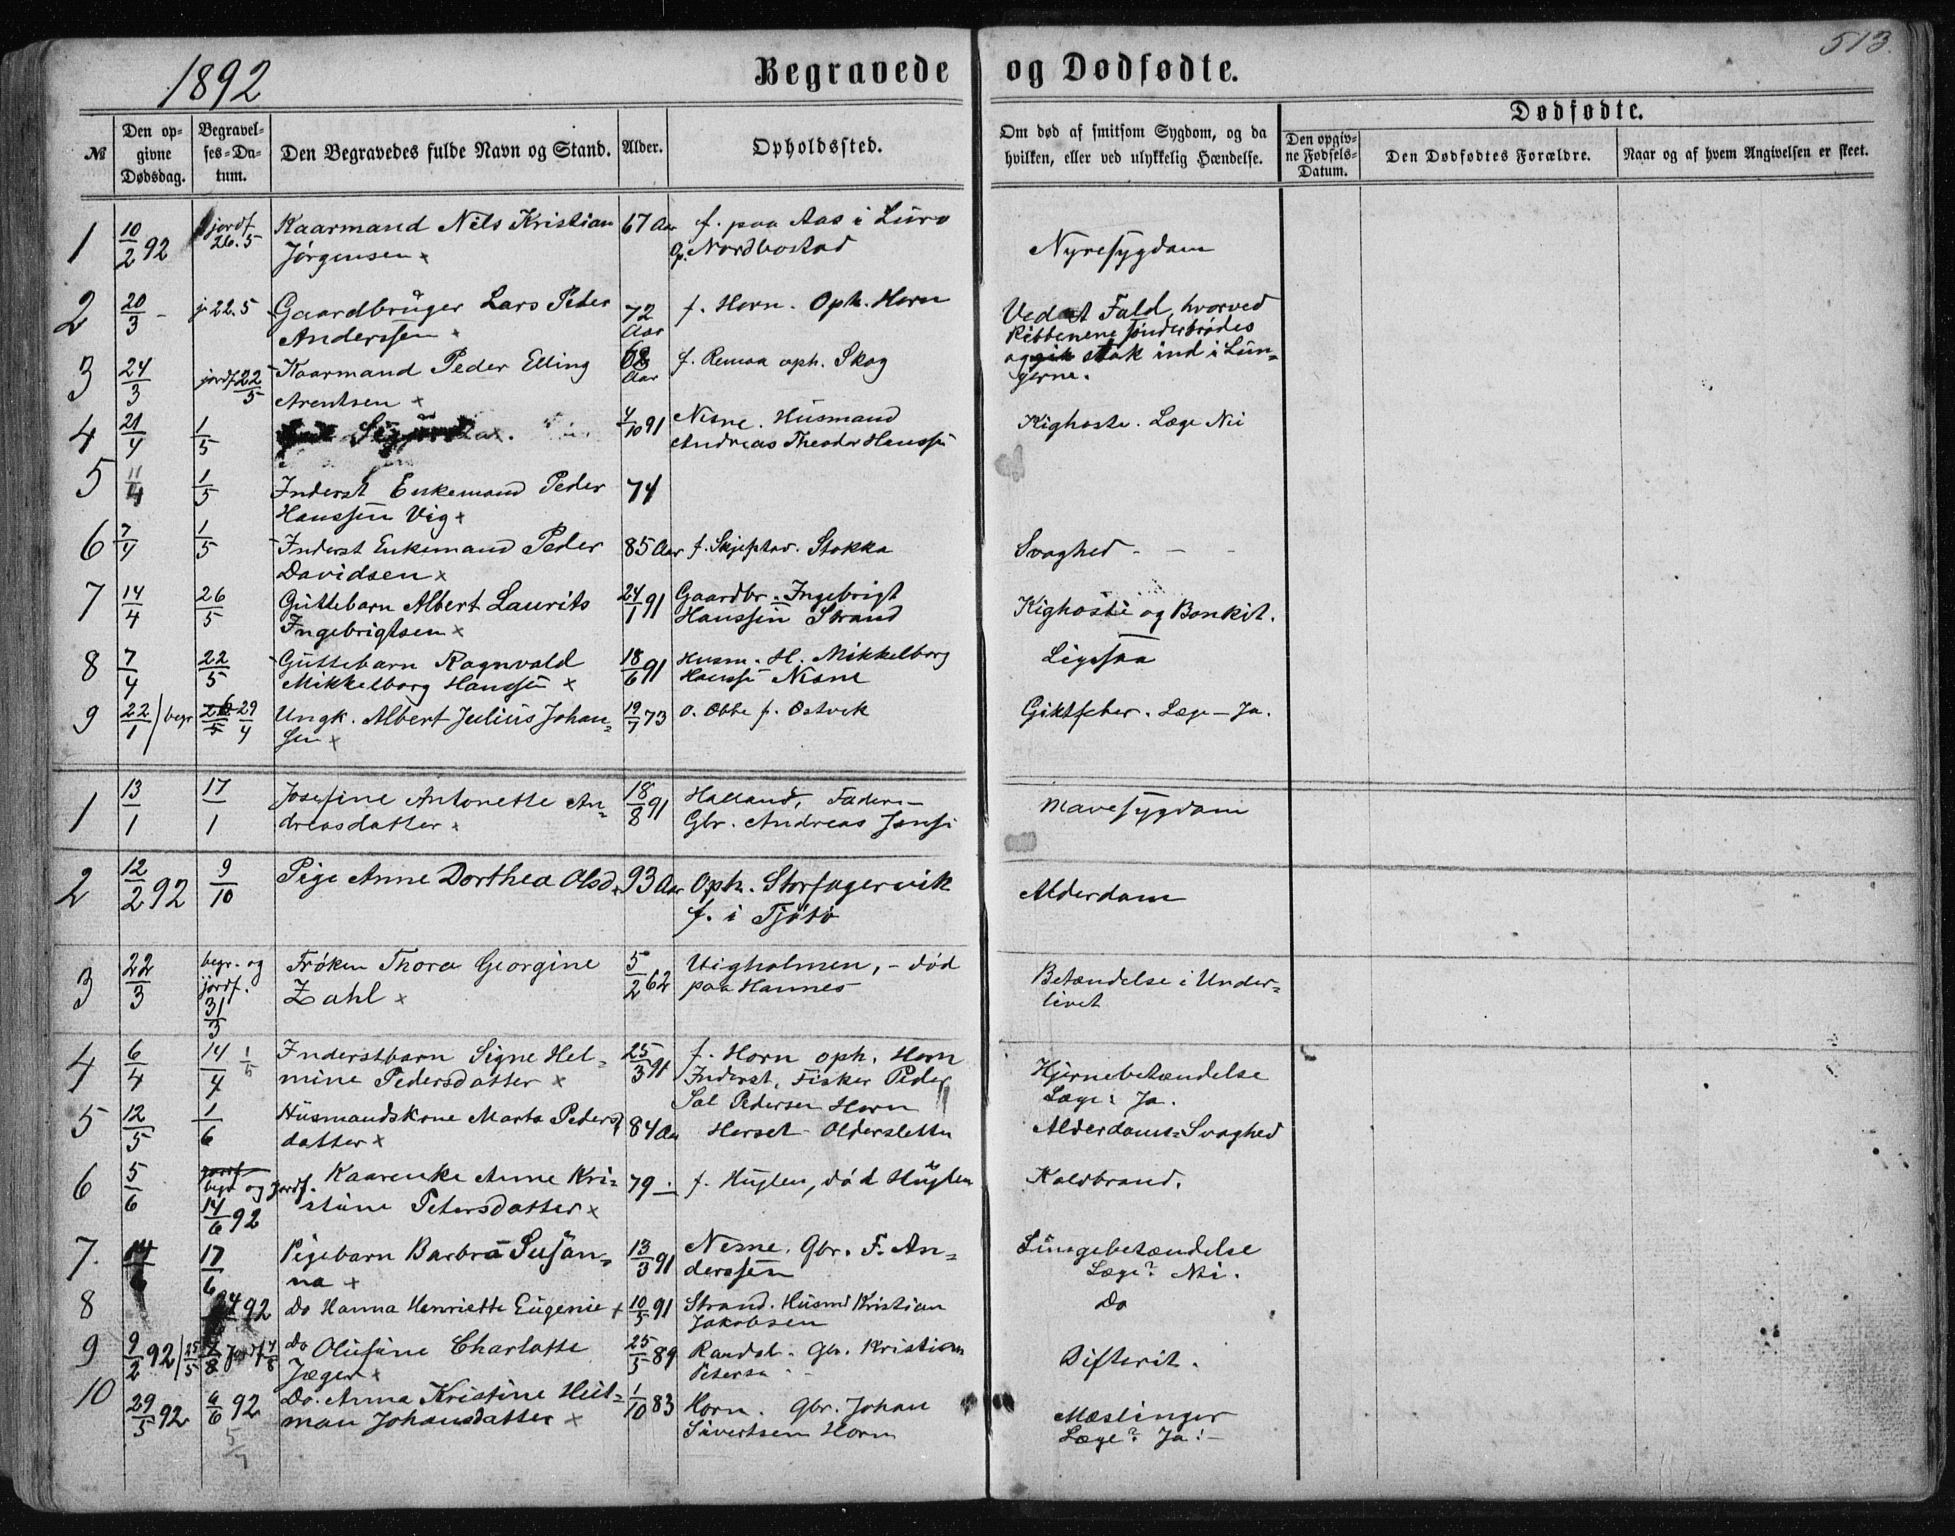 1892
Begravede og Dødfødte.
513.
№
Den opgivne Dødsdag.
Begravelses-Datum.
Den Begravedes fulde Navn og Stand.
Alder.
Opholdssted.
Om død af smitsom Sygdom, og da hvilken, eller ved ulykkelig Hændelse.
Dødfødte.
Den opgivne Fødsels-Datum.
Den Dødfødtes Forældre.
Naar og af hvem Angivelsen er skeet.
1 10/2 92 jordf. 26.5 Kaarmand Nils Kristian 67 Aar f. paa Aas i Lurø
Jørgensen x Op. Nordbostad Nyresygdom
2 20/3 - j. 22.5 Gaardbruger Lars Peder 72 Aar f. Horn. Oph. Horn Ved et Fald, hvorved
Anderssen x Ribbenene sønderbrødes
3 24/3 jordf 22/5 Kaarmand Peder Elling Aar f. Remaa oph. Skog og stak ind i Lun-
Arentsen x gerne.
4 21/4 1/5 4/10 91 Nesne. Husmand Kighoste. Læge Nei
Andreas Theodor Hanssen
5 11/4 1/5 Inderst Enkemand Peder 74
Hanssen Vig x
6 7/4 1/5 Inderst Enkemand Peder 85 Aar f. Stokka Svaghed - - -
Davidsen x
7 14/4 26/5 Guttebarn Albert Laurits 24/1 91 Gaardbr. Ingebrigt Kighoste og Bonkit.
Ingebrigtsen x Hanssen Strand
8 7/4 22/5 Guttebarn Ragnvald 18/6 91 Husm. H. Mikkelborg Ligesaa
Mikkelborg Hanssen x Hanssen Nesne
9 22/1 / begr 29/4 Ungk. Albert Julius Johan- 19/7 73 o. f. Østvik Giktfeber. Læge - Ja.
sen x
1 13/1 17/1 Josefine Antonette An- 18/8 91 Halland, Faderen Mavesygdom
dreasdatter x Gbr. Andreas
2 12/2 92 9/10 Pige Anne Dorthea Olsd. x 93 Aar Oph. Storfagervik Alderdom
f. i Tjøtø
3 22/3 begr. og jordf. 31/3 Frøken Thora Georgine 5/2 62 Vigholmen, - død Betændelse i Under-
Zahl x paa Hannes livet
4 6/4 14/4 1/6 Inderstbarn Signe Hel- 25/3 91 f. Horn oph. Horn Hjernebetændelse
mine Pedersdatter x Inderst, Fisker Peder Læge: Ja.
Sal Pedersen Horn
5 12/5 1/6 Husmandskone Marta Peders- 84 Aar Herset Oldersletta Alderdoms-Svaghed
datter x
6 5/6 begr og jordf. 14/6 92 Kaarenke Anne Kri- 79 - f. Huglen, død Huglen Koldbrand.
stine Petersdatter x
7. 17/6 Pigebarn Barbra Susan- 13/3 91 Nesne. Gbr. F. An- Lungebetændelse
na x derssen Læge? Nei.
8 92 Do Hanna Henriette Eugenie x 10/5 91 Strand. Husmd Kristian Do
Jakobsen
9 9/2 92 / 25/5 Jordf Do Olufine Charlotte 25/5 89 Gbr. Kristian Difterit.
Jæger x
10 29/5 92 6/6 92 Do. Anna Kristine Heit- 1/10 83 Horn. Gbr. Johan Mæslinger
man Johansdatter x Sivertsen Horn Læge? Ja! -
5/7